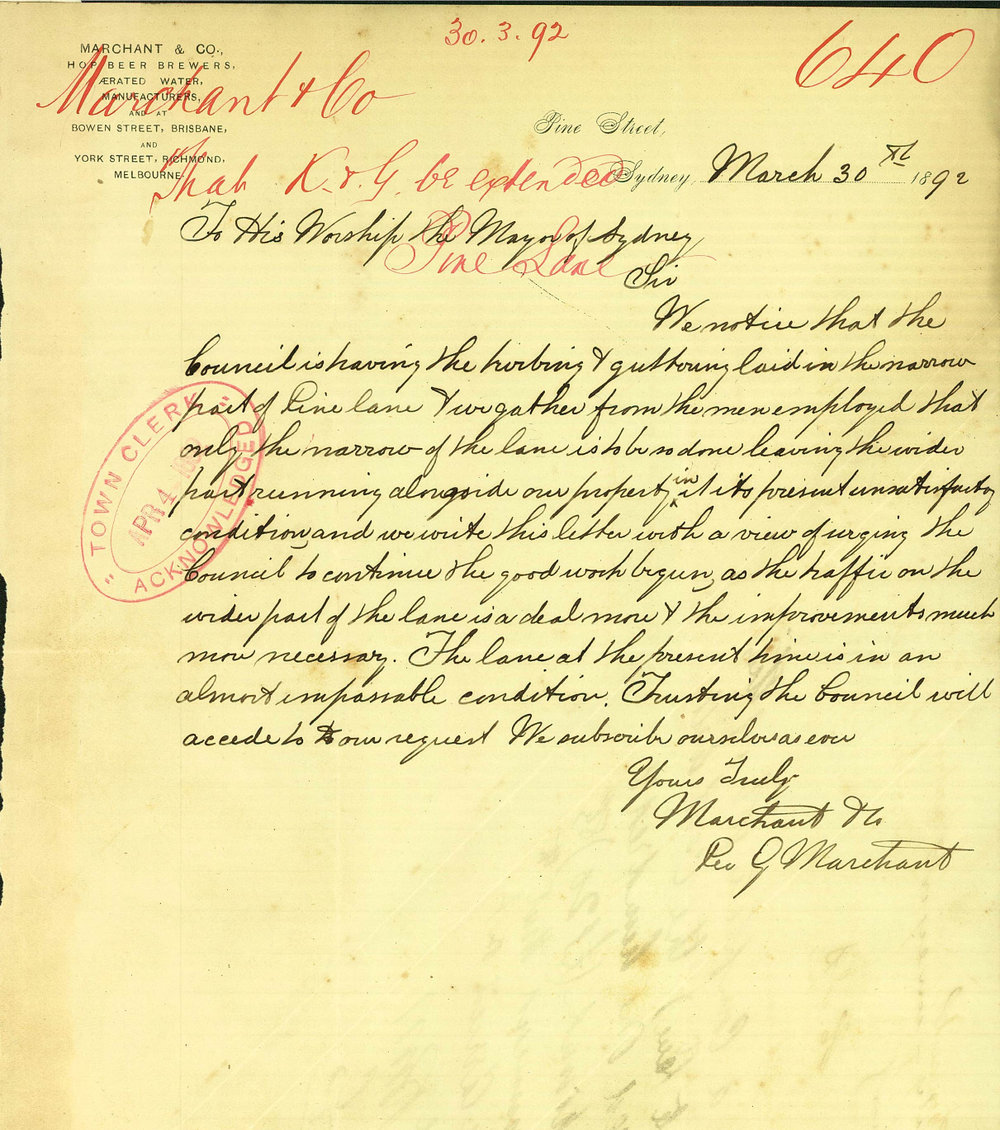 30.3.92
640
MARCHANT & CO.,
HOP BEER BREWERS,
ÆRATED WATER,
MANUFACTURERS,
AND AT
BOWEN STREET, BRISBANE,
AND
YORK STREET, RICHMOND,
MELBOURNE
Marchant & Co
That K. & G. be extended
Pine Lane
Pine Street,
Sydney, March 30th 1892
To His Worship the Mayor of Sydney
Sir
We notice that the
Council is having the kirbing & guttering laid in the narrow
part of Pine lane & we gather from the men employed that
only the narrow of the lane is to be so done leaving the wider
part running alongside our property in it its present unsatisfactory
condition, and we write this letter with a view of urging the
Council to continue the good work begun, as the traffic on the
wider part of the lane is a deal more & the improvements much
more necessary. The lane at the present time is in an
almost impassable condition. Trusting the Council will
accede to our request We subscribe ourselves as ever
Yours Truly
Marchant & Co
Per G Marchant
" TOWN CLERK "
APR 4 1892
ACKNOWLEDGED